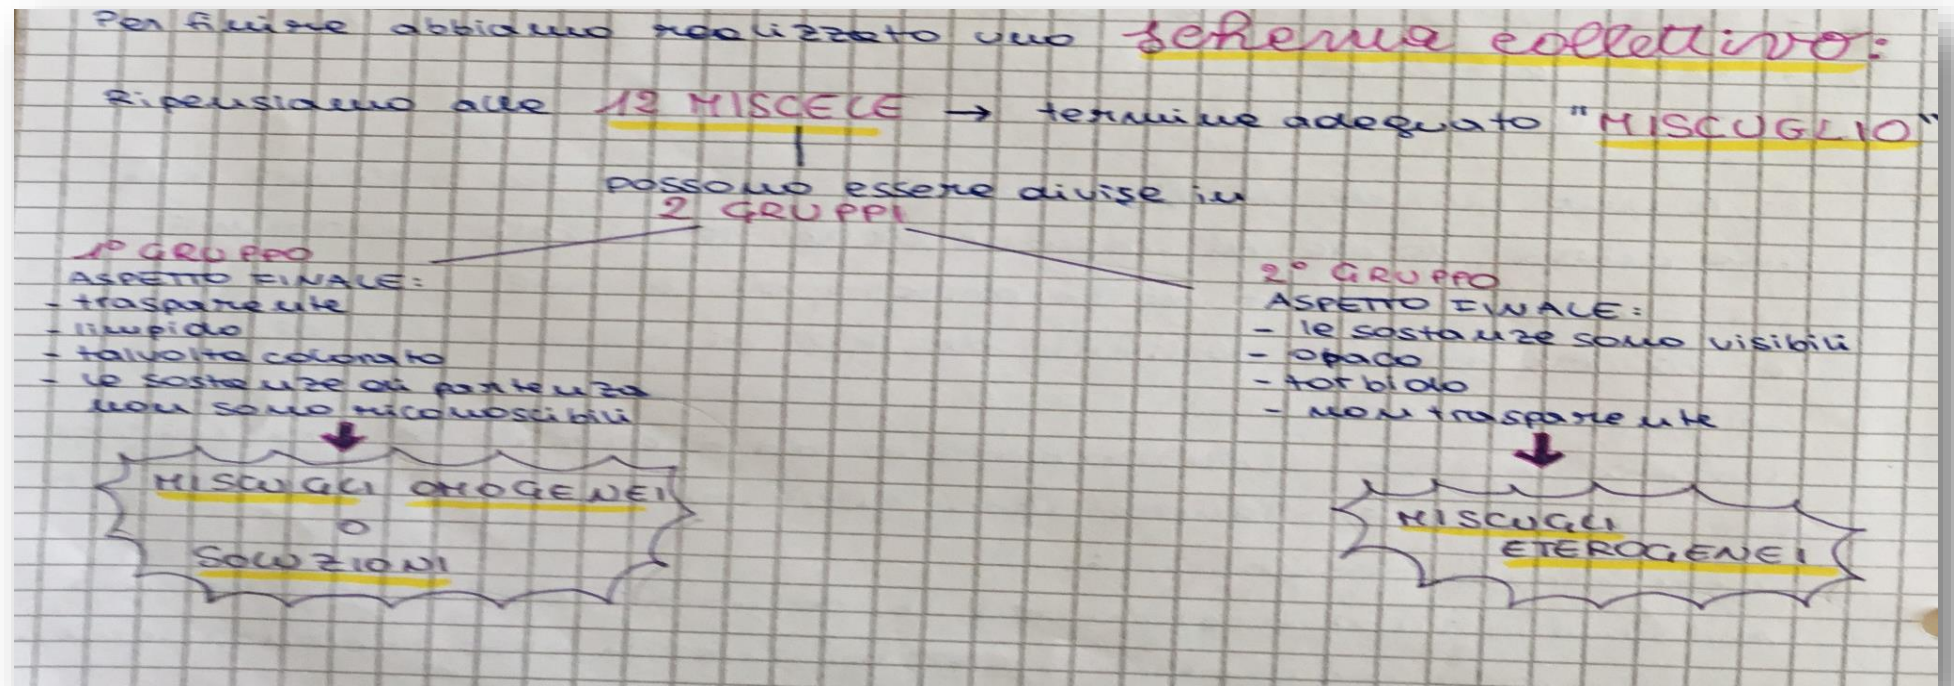 Per finire abbiamo realizzato uno schema collettivo:
Ripensiamo alle 12 MISCELE → termine adeguato "MISCUGLIO"
possono essere divise in
2 GRUPPI
1° GRUPPO
ASPETTO FINALE:
- trasparente
- limpido
- talvolta colorato
- le sostanze di partenza
non sono riconoscibili
MISCUGLI OMOGENEI
O
SOLUZIONI
2° GRUPPO
ASPETTO FINALE:
- le sostanze sono visibili
- opaco
- torbido
- non trasparente
MISCUGLI
ETEROGENEI